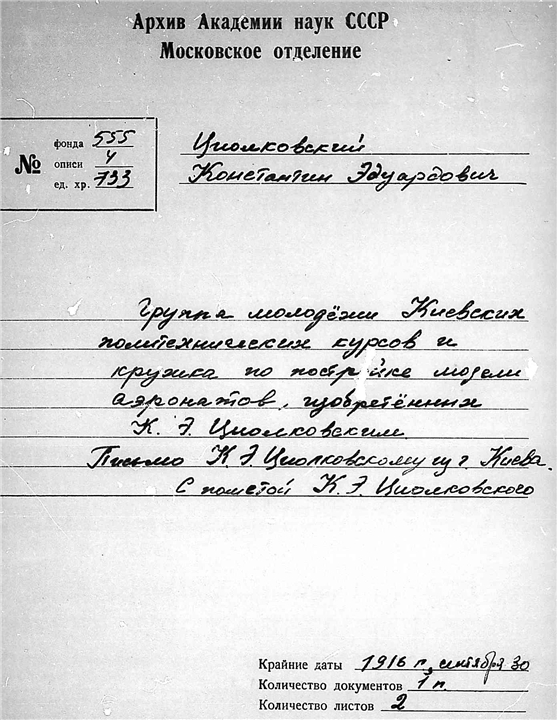 Архив Академии наук СССР
Московское отделение
№
фонда 555
описи 4
ед. хр. 733
Циолковский
Константин Эдуардович
Группа молодёжи Киевских
политехнических курсов и
кружка по постройке модели
аэронатов, изобретённых
К. Э. Циолковским.
Письмо К. Э. Циолковскому из г. Киева.
С пометой К. Э. Циолковского
Крайние даты 1916 г, сентября 30
Количество документов 1 п.
Количество листов 2